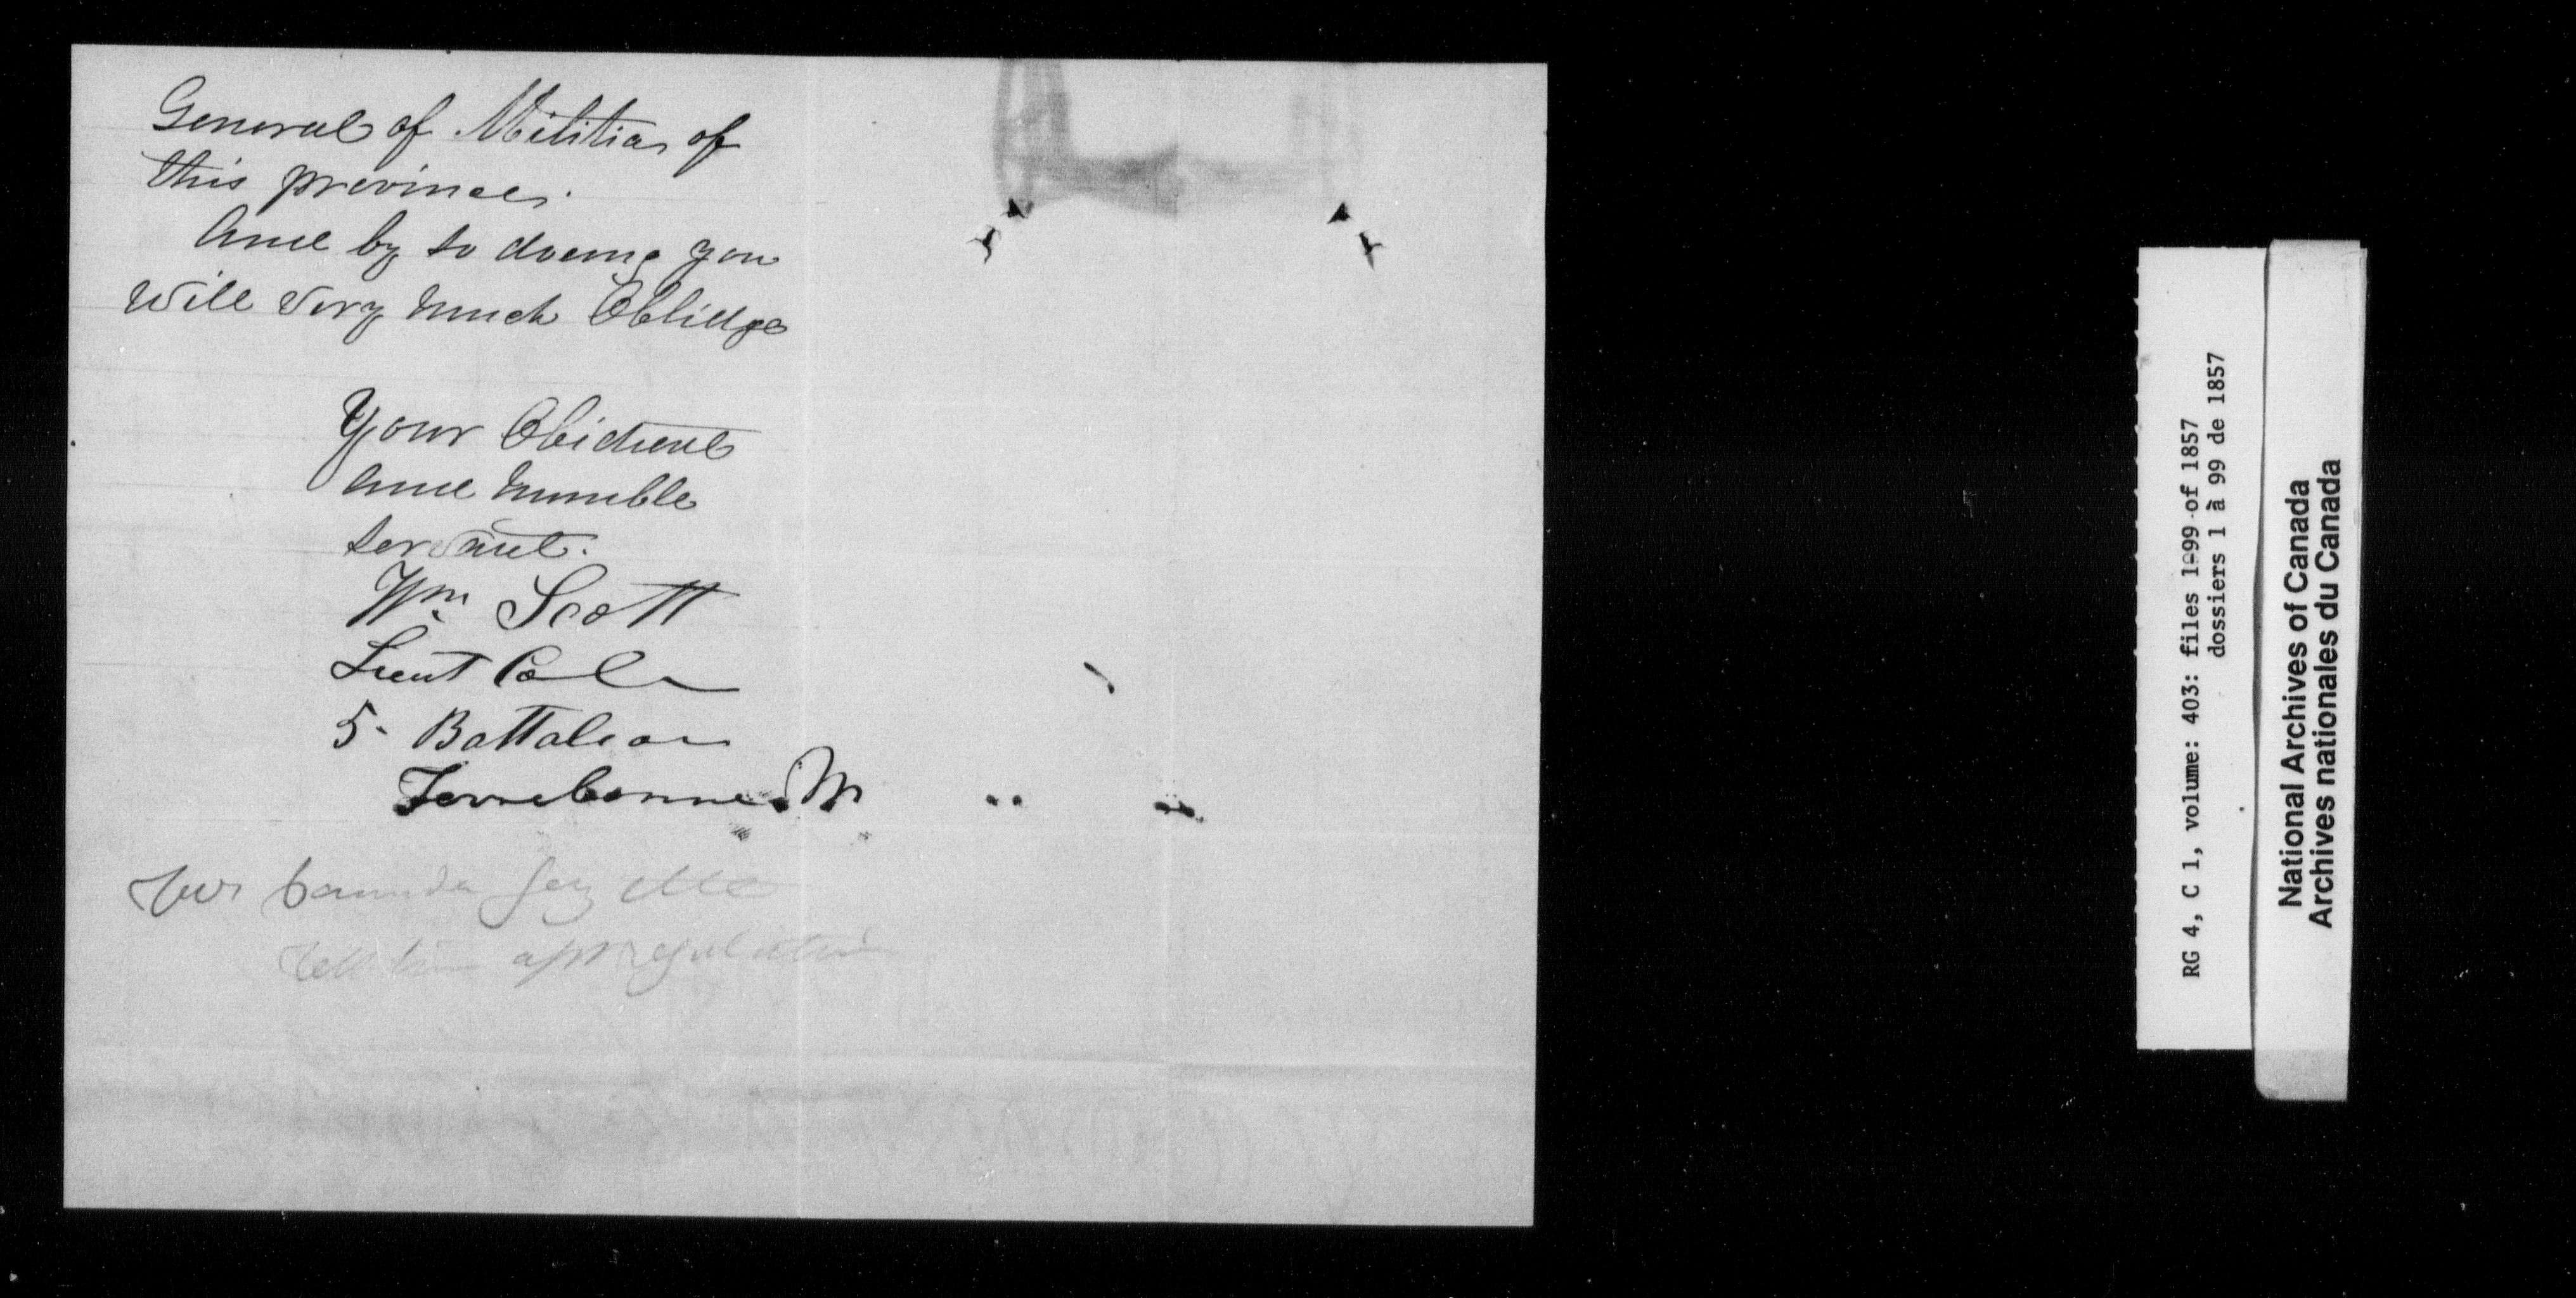 General of Militia of
this province.
And by so doeing you
will very much Oblidge
Your Obidient
and humble
servant.
Wm Scott
Lieut Col
5 Battalion
Terrebonne M
See Canada Gazette
tell him
RG 4, C 1, volume: 403: files 1-99 of 1857
dossiers 1 à 99 de 1857
National Archives of Canada
Archives nationales du Canada